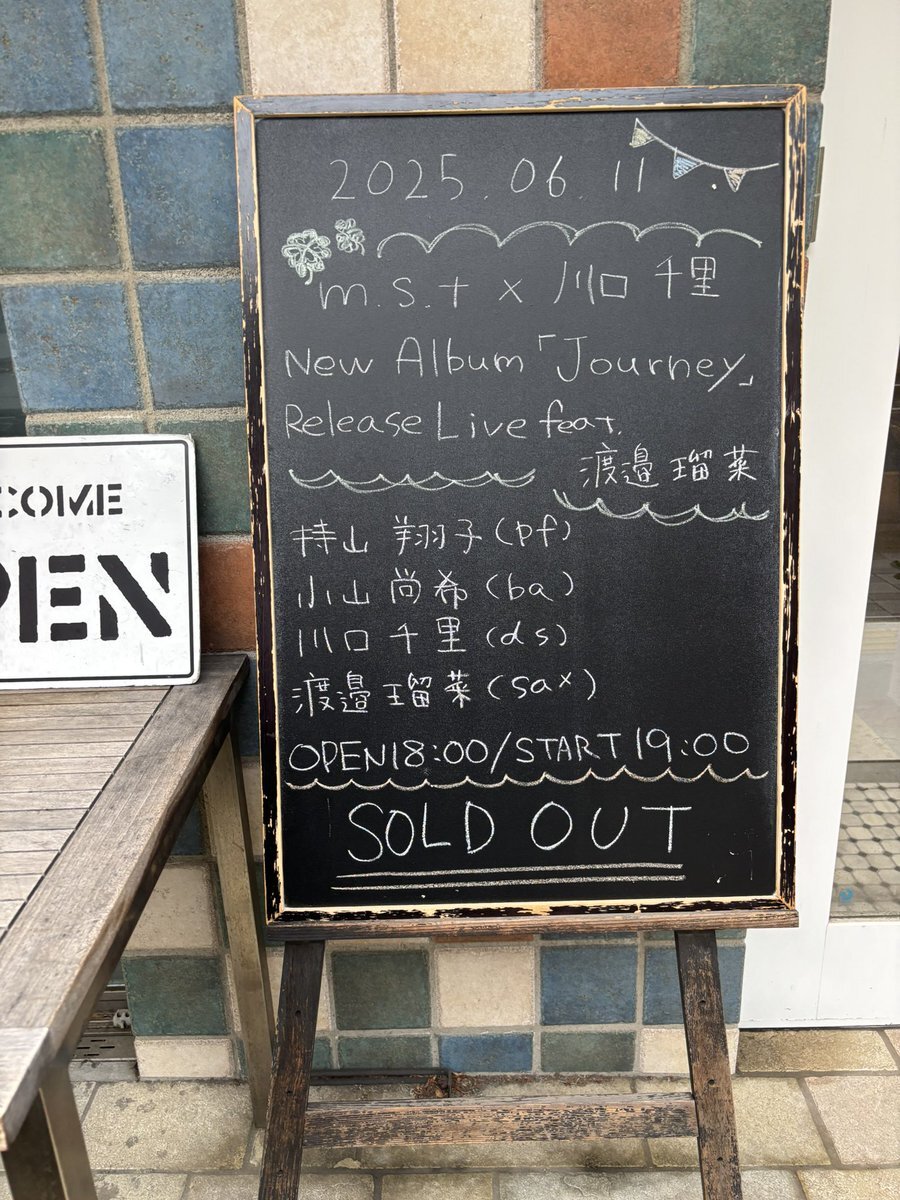 2025.06.11
m.s.t x 川口 千里
New Album「Journey」
Release Live feat.
渡邉 瑠菜
持山 翔子(pf)
小山 尚希(ba)
川口 千里(ds)
渡邉 瑠菜(sax)
OPEN18:00/START19:00
SOLD OUT
COME
PEN